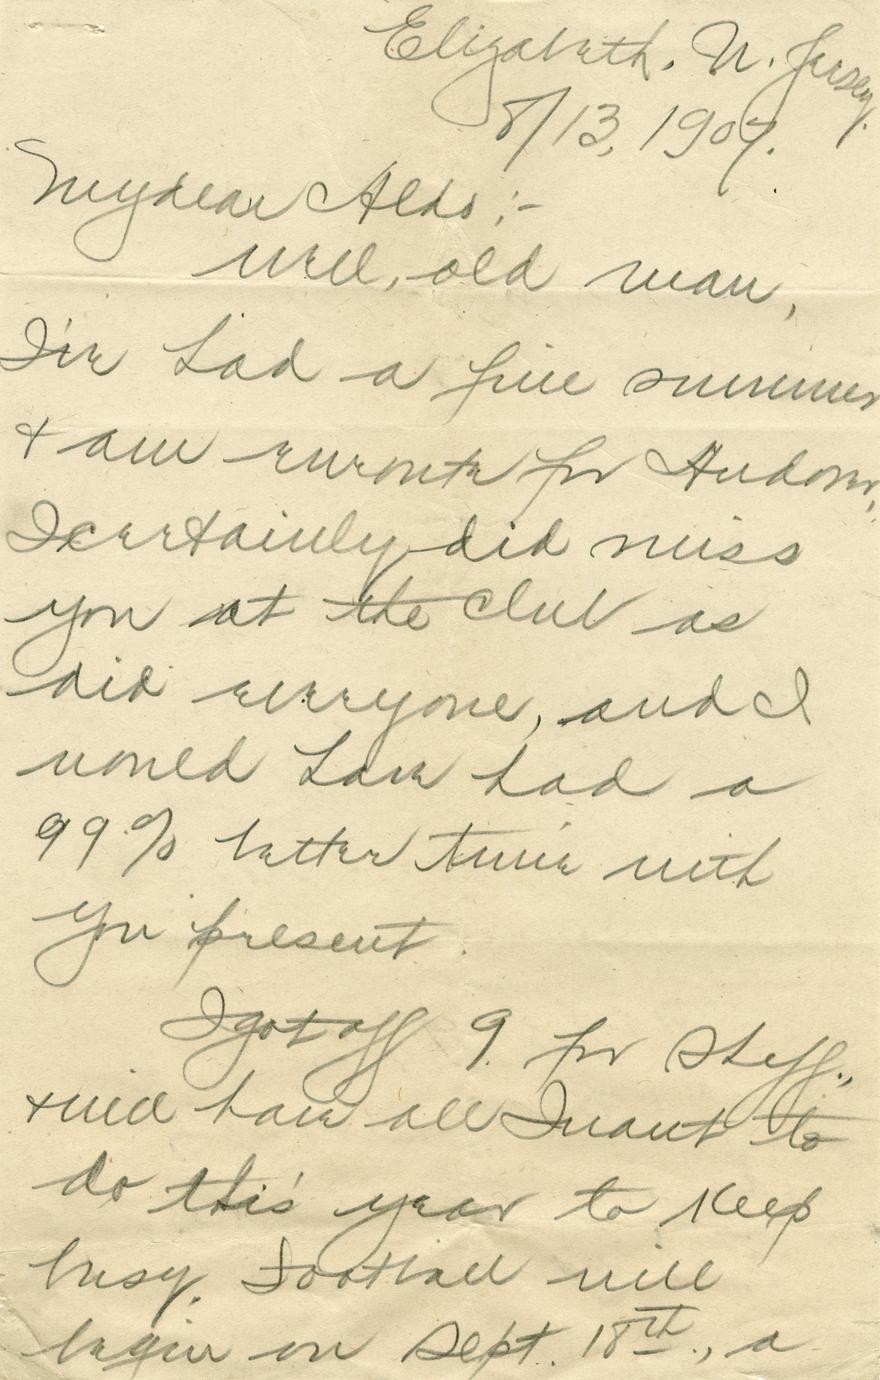 Elizabeth, N. Jersey.
8/13, 1907.
My dear Aldo:-
Well, old man,
I've had a fine summer
& am enroute for Andover,
I certainly did miss
you at the Club as
did everyone, and I
would have had a
99% better time with
you present.
I got off 9 for Sheff.,
& will have all I want to
do this year to keep
busy. Football will
begin on Sept. 18th., a